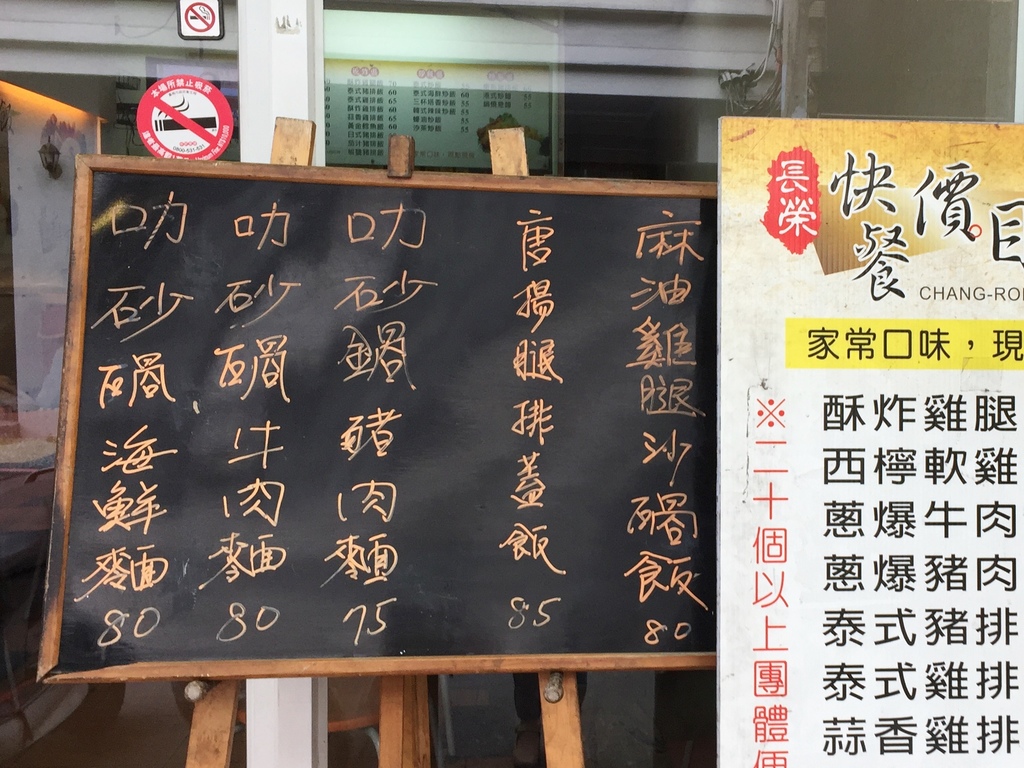 本場所禁止吸菸
0800-531-531
麻油雞腿沙鍋飯
80
唐揚腿排蓋飯
85
叻砂鍋豬肉麵
75
叻砂鍋牛肉麵
80
叻砂鍋海鮮麵
80
長榮
快餐價目
CHANG-RO
家常口味，現
※二十個以上團體便
酥炸雞腿
西檸軟雞
蔥爆牛肉
蔥爆豬肉
泰式豬排
泰式雞排
蒜香雞排